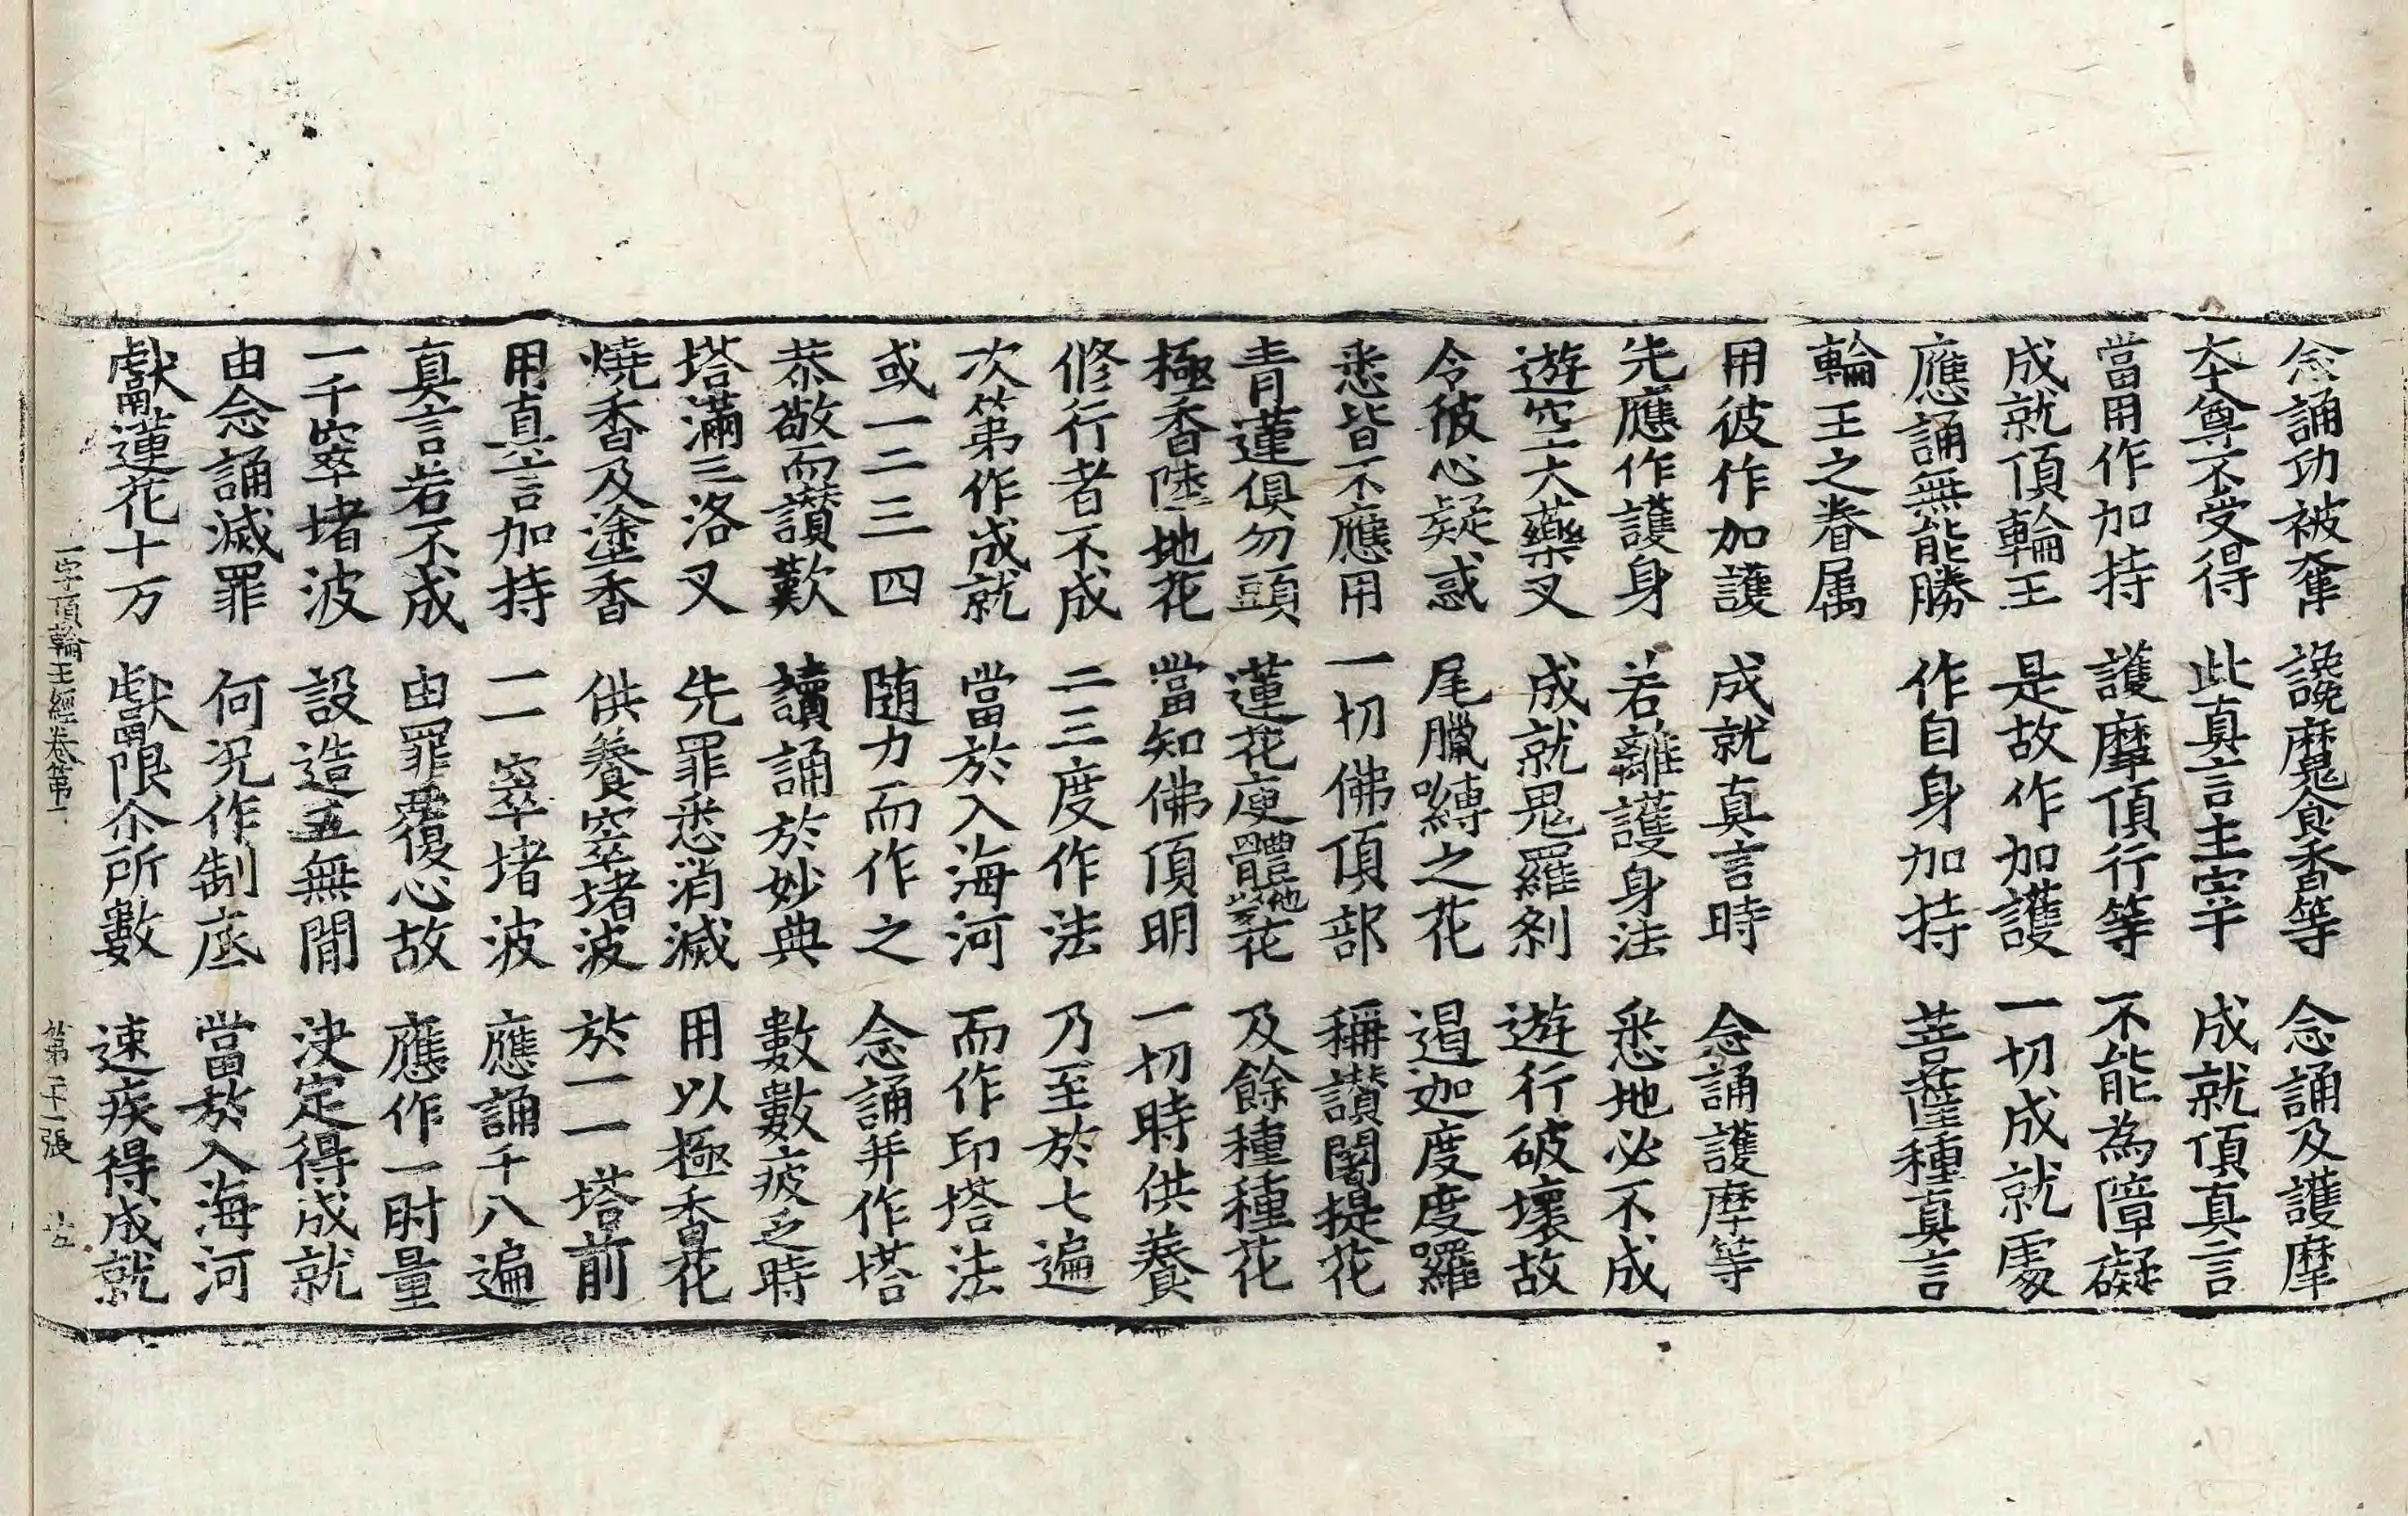 念誦功被奪 讒魔食香等 念誦及護摩
本尊不受得 此真言主宰 成就頂真言
當用作加持 護摩頂行等 不能為障礙
成就頂輪王 是故作加護 一切成就處
應誦無能勝 作自身加持 菩薩種真言
輪王之眷属
用彼作加護 成就真言時 念誦護摩等
先應作護身 若離護身法 悉地必不成
遊空大藥叉 成就鬼羅剎 遊行破壞故
令彼心疑惑 尾臘嚩之花 遏迦度度羅
悉皆不應用 一切佛頂部 稱讚闍提花
青蓮俱勿頭 蓮花廋體他以反花 及餘種種花
極香陸地花 當知佛頂明 一切時供養
修行者不成 二三度作法 乃至於七遍
次第作成就 當於入海河 而作印塔法
或一二三四 随力而作之 念誦并作塔
恭敬而讚歎 讀誦於妙典 數數疲乏時
塔滿三洛叉 先罪悉消滅 用以極香花
燒香及塗香 供養窣堵波 於一一塔前
用真言加持 一一窣堵波 應誦千八遍
真言若不成 由罪覆心故 應作一肘量
一千窣堵波 設造五無間 決定得成就
由念誦滅罪 何况作制底 當於入海河
獻蓮花十万 獻限尒所數 速疾得成就
一字頂輪王經卷第一 第二十一張